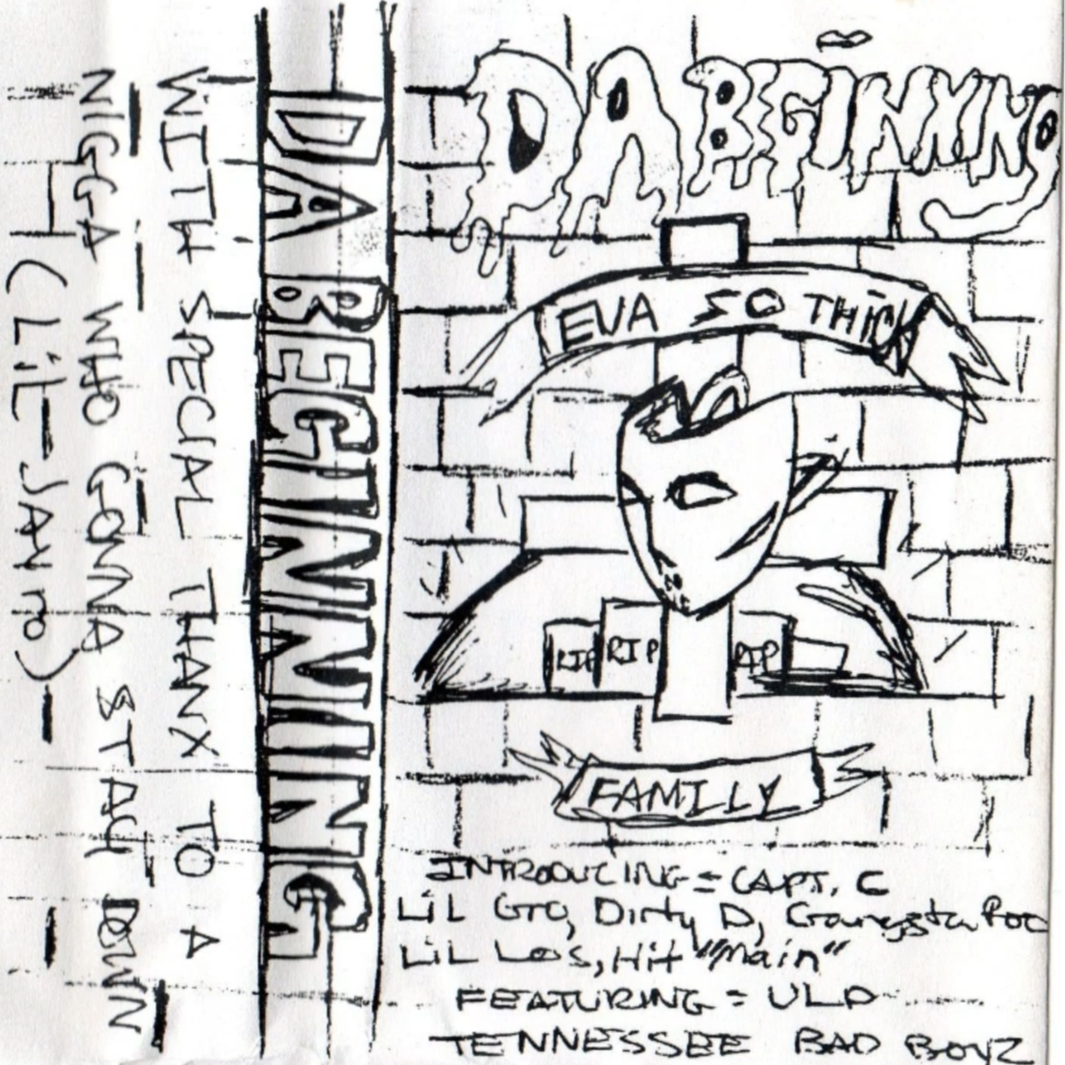 WITH SPECIAL THANX TO A
NIGGA WHO GONNA STAY DOWN
DA BEGINNING
DA BEGINNING
EVA SO THICK
RIP RIP RIP
FAMILY
INTRODUCING = CAPT. C
LiL GTO, Dirty D, Gangsta Poo
LiL Los, Hit "main"
FEATURING = ULP
TENNESSEE BAD BOYZ